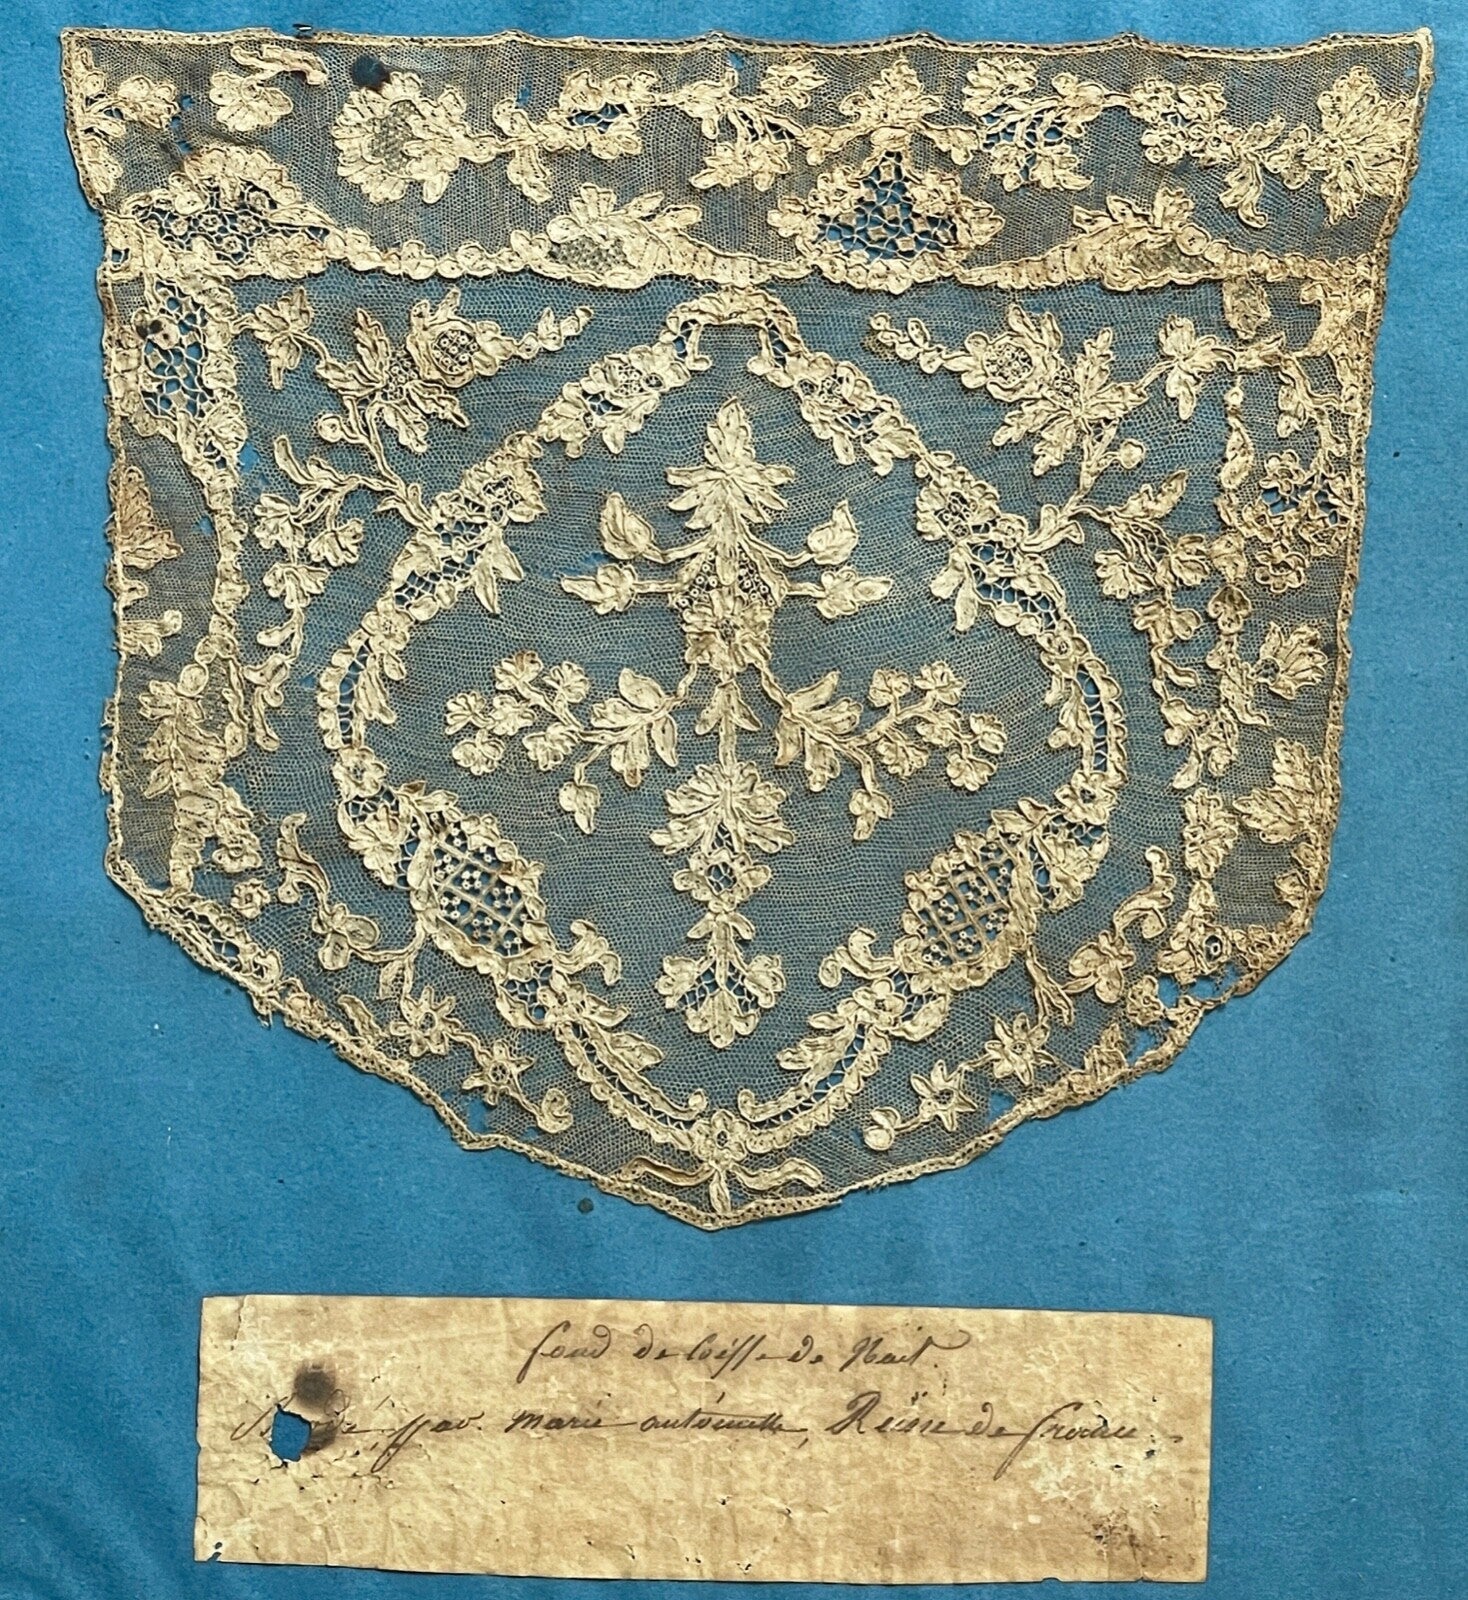 fond de Coiffe de Nuit.
par marie antoinette, Reine de france.